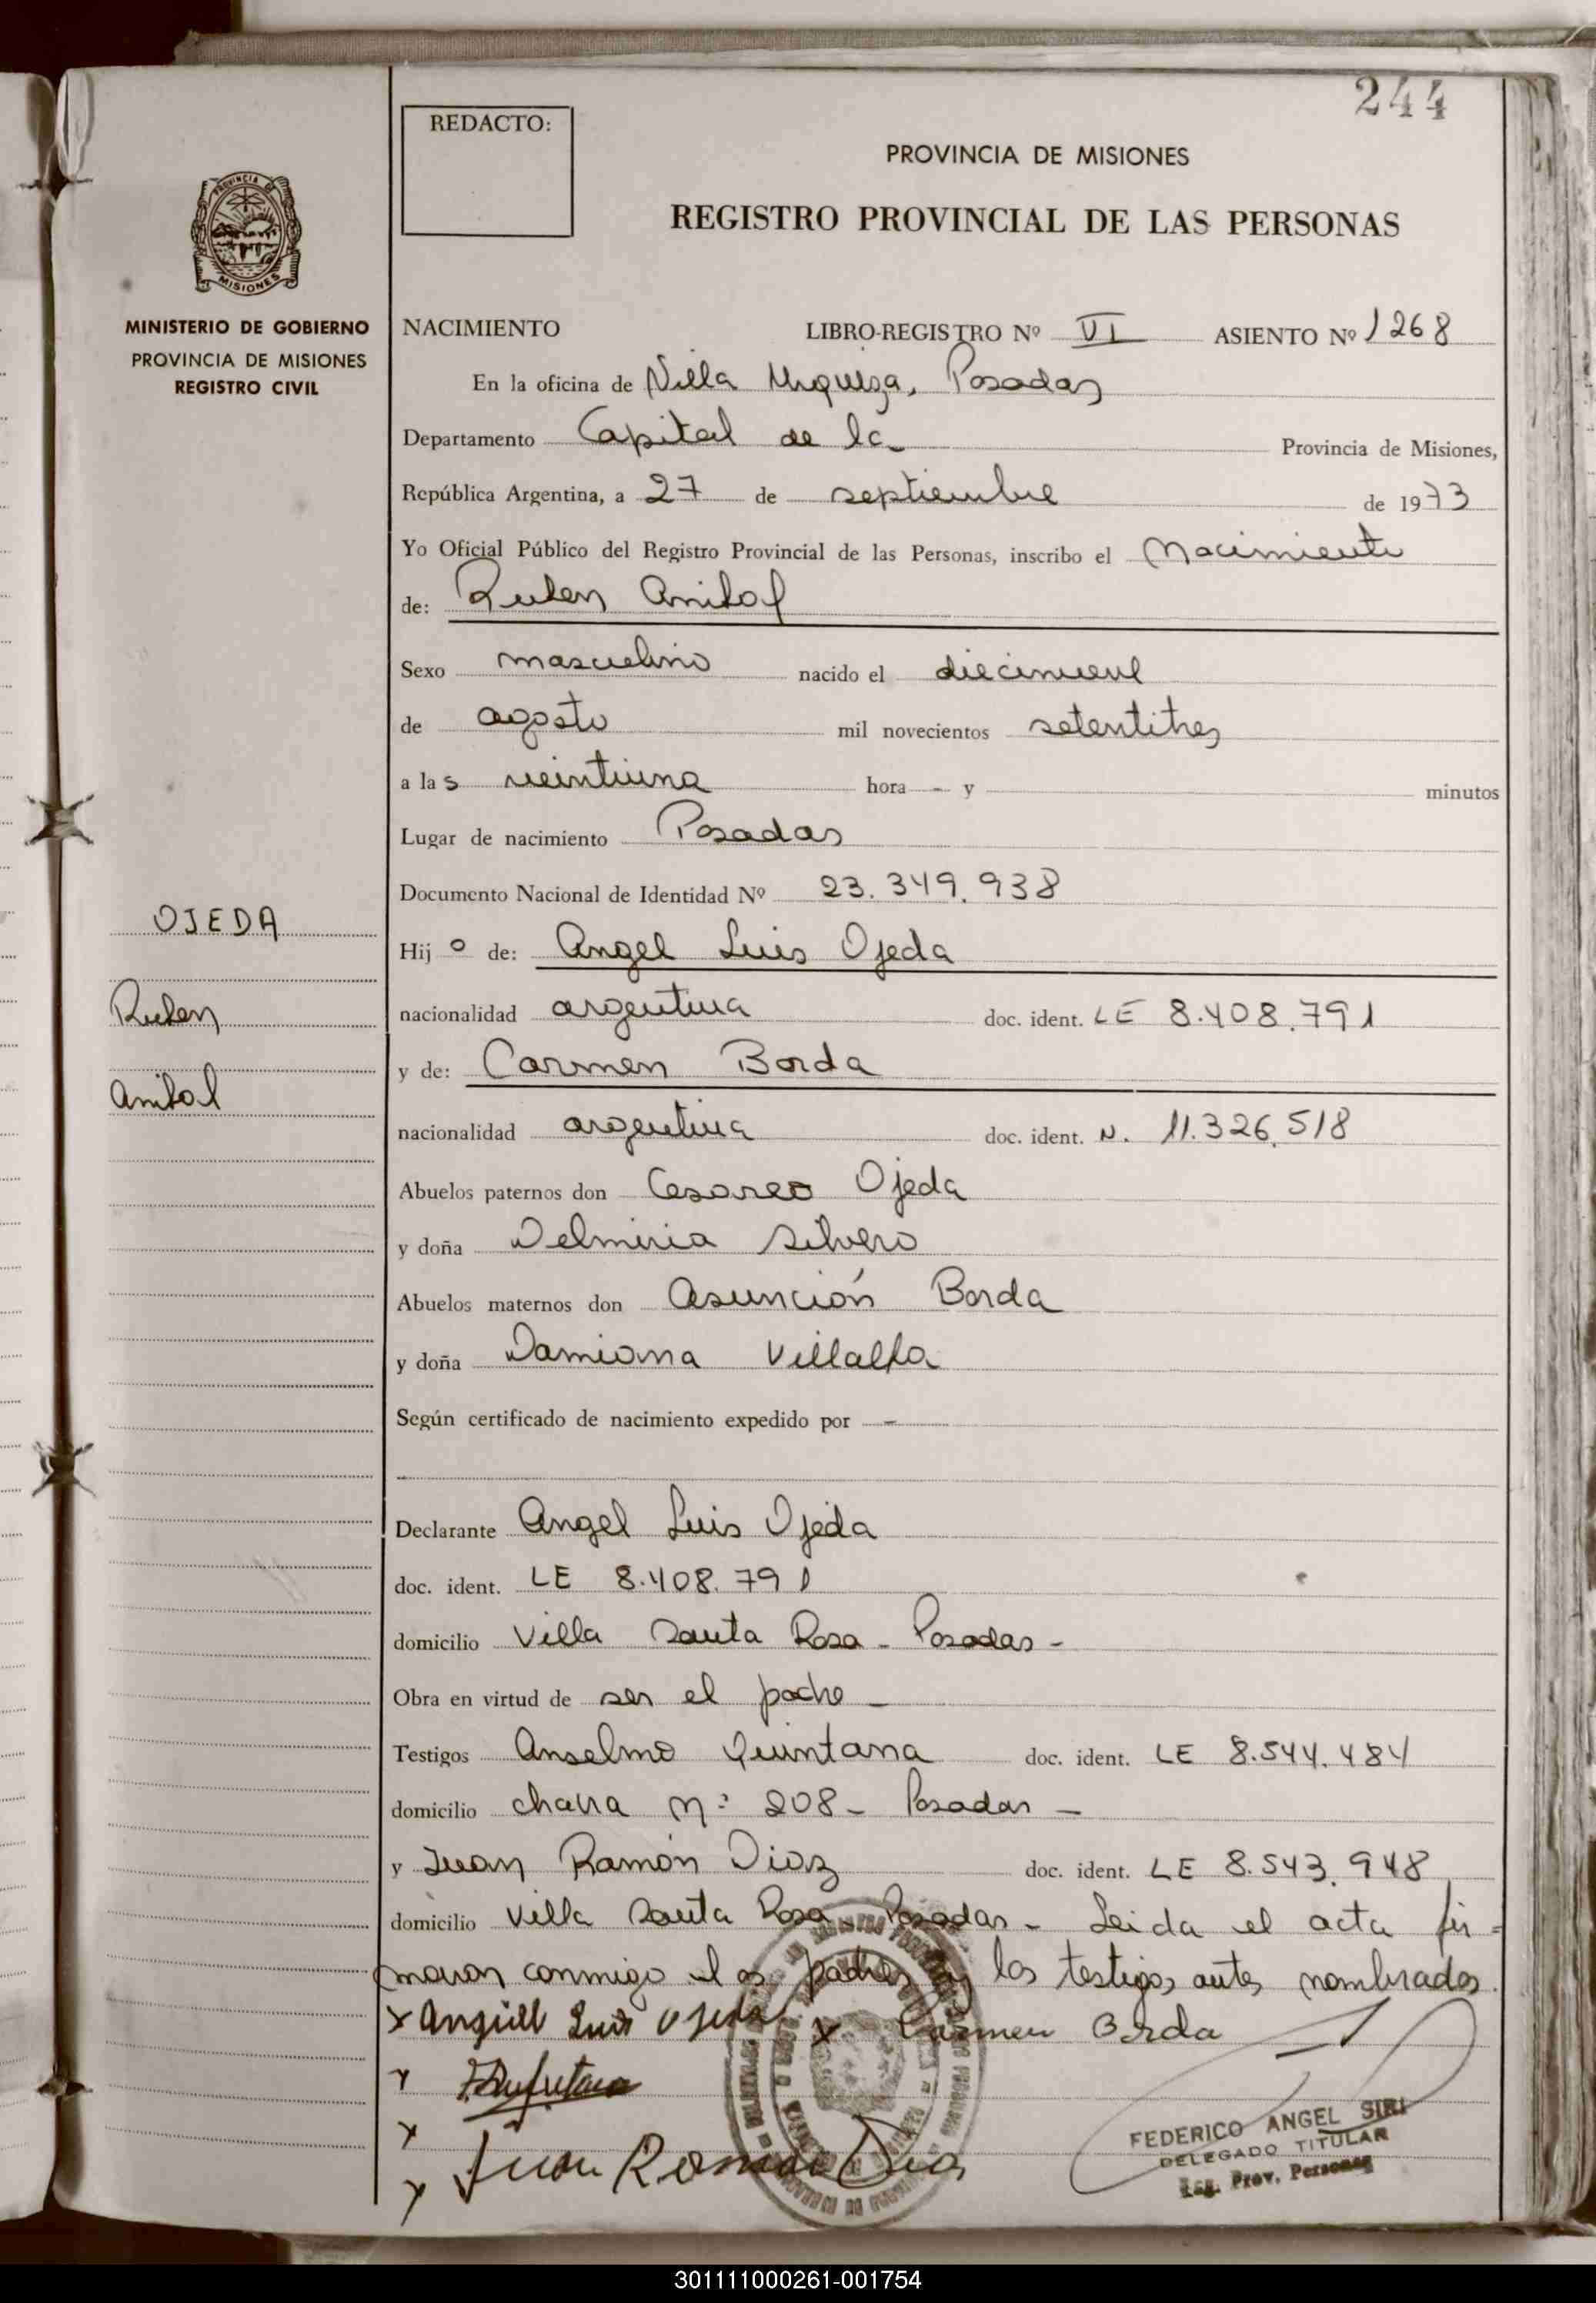 244
REDACTO:
PROVINCIA DE MISIONES
REGISTRO PROVINCIAL DE LAS PERSONAS
PROVINCIA DE
MISIONES
MINISTERIO DE GOBIERNO
PROVINCIA DE MISIONES
REGISTRO CIVIL
NACIMIENTO LIBRO-REGISTRO Nº VI ASIENTO Nº 1268
En la oficina de Villa Urquiza, Posadas
Departamento Capital de la Provincia de Misiones,
República Argentina, a 27 de septiembre de 1973
Yo Oficial Público del Registro Provincial de las Personas, inscribo el Nacimiento
de: Ruben Anibal
Sexo masculino nacido el diecinueve
de agosto mil novecientos setentitres
a las veintiuna hora - y minutos
Lugar de nacimiento Posadas
Documento Nacional de Identidad Nº 23.349.938
OJEDA
Hijo de: Angel Luis Ojeda
Ruben
nacionalidad argentina doc. ident. LE 8.408.791
y de: Carmen Borda
Anibal
nacionalidad argentina doc. ident. N. 11.326.518
Abuelos paternos don Cesareo Ojeda
y doña Delmiria Silvero
Abuelos maternos don Asunción Borda
y doña Damiana Villalba
Según certificado de nacimiento expedido por -
Declarante Angel Luis Ojeda
doc. ident. LE 8.408.791
domicilio Villa Santa Rosa - Posadas -
Obra en virtud de ser el padre -
Testigos Anselmo Quintana doc. ident. LE 8.544.484
domicilio chacra Nº 208 - Posadas -
y Juan Ramón Diaz doc. ident. LE 8.543.948
domicilio Villa Santa Rosa - Posadas - Leida el acta fir-
maron conmigo los padres y los testigos antes nombrados.
x Angel Luis Ojeda x Carmen Borda
Juan Ramon Diaz
FEDERICO ANGEL SIRI
DELEGADO TITULAR
Reg. Prov. Personas
301111000261-001754